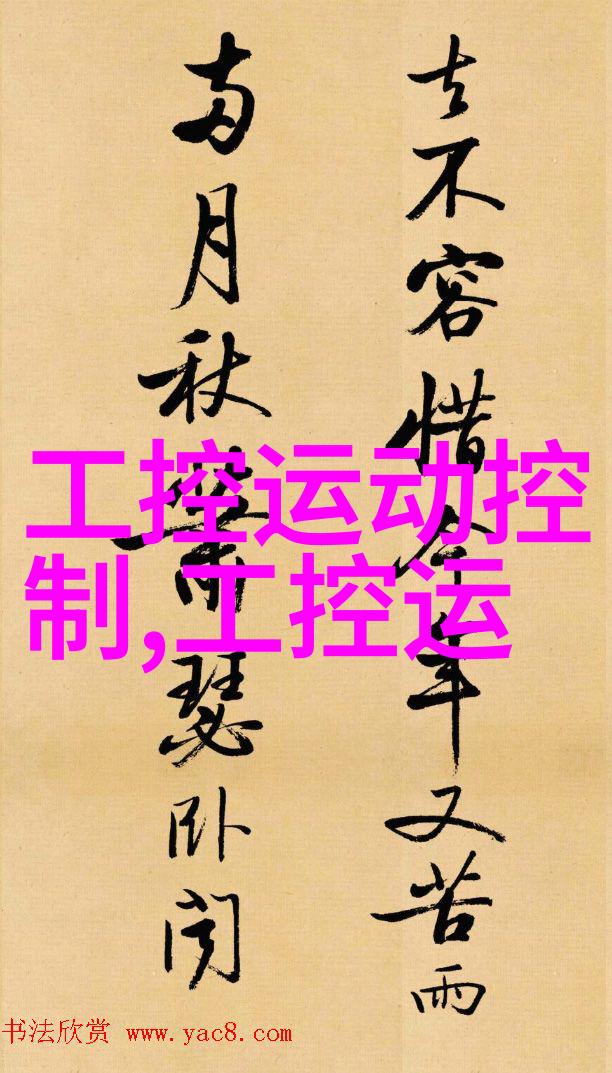 去不容惜今年又苦雨
两月秋蕭瑟卧闻
工控运动控
制,工控运
书法欣赏 www.yac8.com